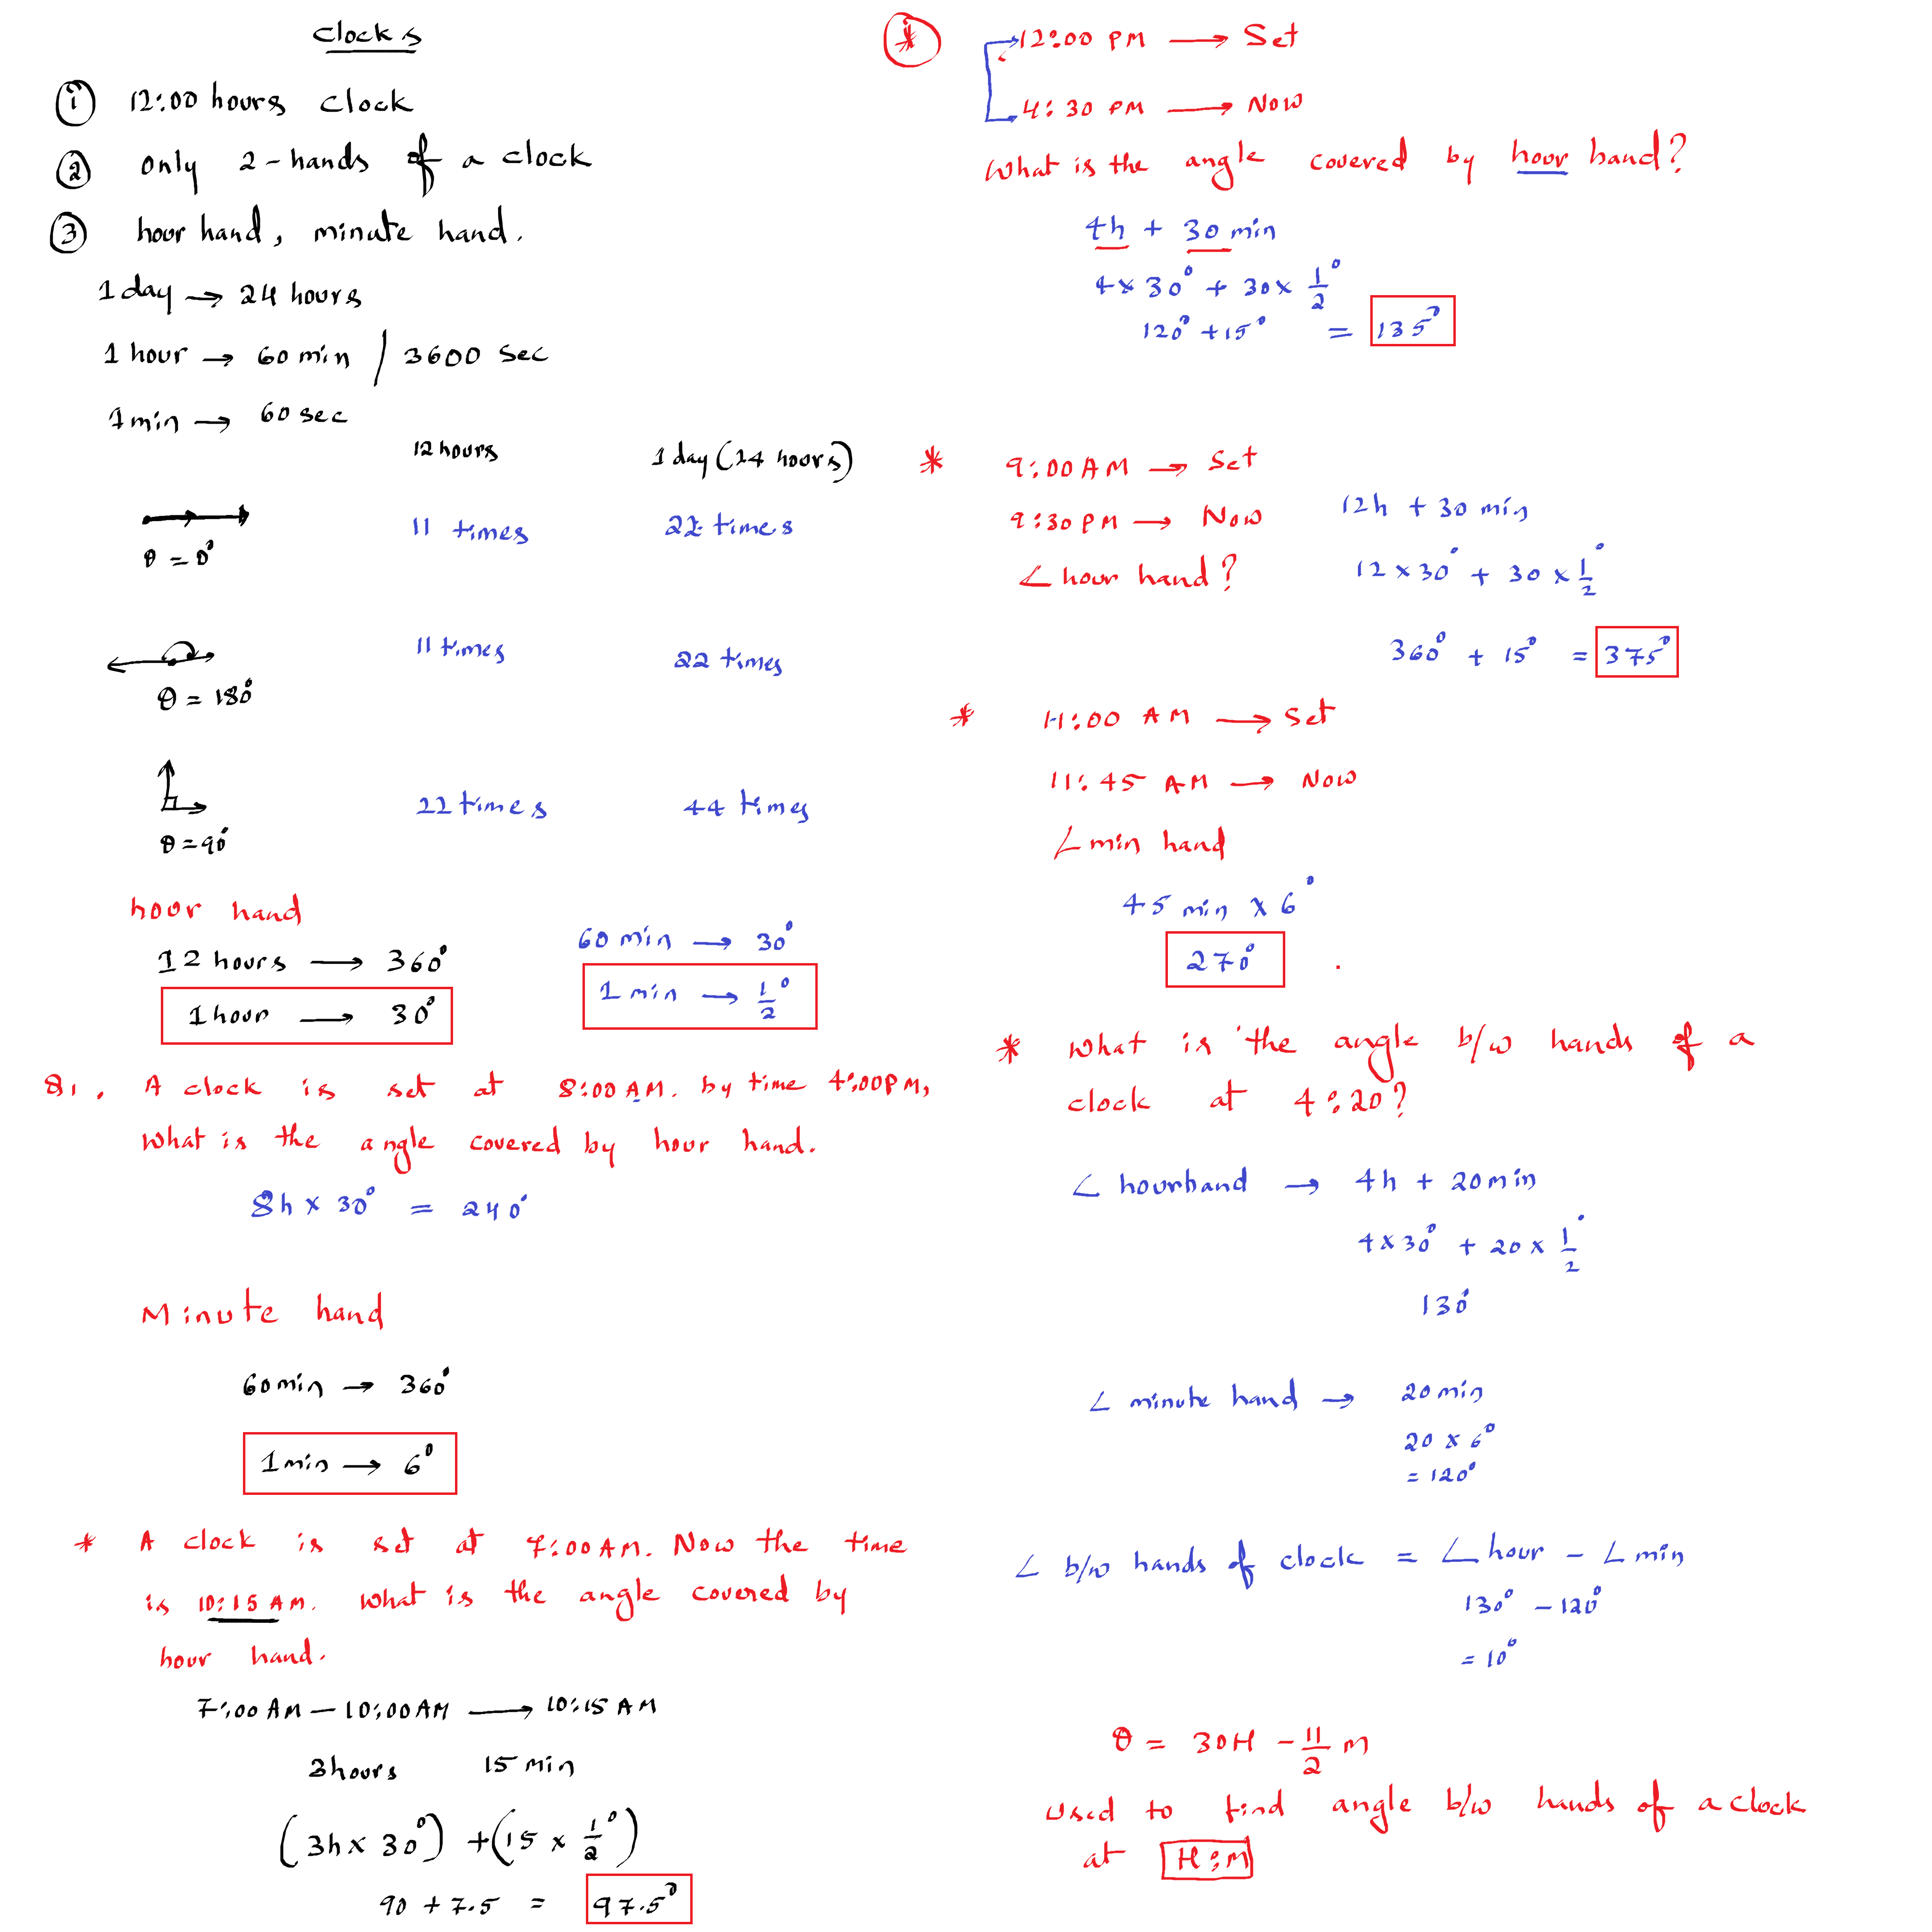 Clocks
① 12:00 hours clock
② only 2-hands of a clock
③ hour hand, minute hand.
1 day → 24 hours
1 hour → 60 min / 3600 sec
1 min → 60 sec
12 hours 1 day (24 hours)
11 times 22 times
θ = 0°
11 times 22 times
θ = 180°
22 times 44 times
θ = 90°
hour hand
12 hours → 360°
1 hour → 30°
60 min → 30°
1 min → 1/2°
Q1. A clock is set at 8:00 AM. by time 4:00 PM,
What is the angle covered by hour hand.
8h × 30° = 240°
Minute hand
60 min → 360°
1 min → 6°
* A clock is set at 7:00 AM. Now the time
is 10:15 AM. What is the angle covered by
hour hand.
7:00 AM — 10:00 AM → 10:15 AM
3 hours 15 min
(3h × 30°) + (15 × 1/2°)
90 + 7.5 = 97.5°
* 12:00 PM → Set
4:30 PM → Now
What is the angle covered by hour hand?
4h + 30 min
4 × 30° + 30 × 1/2°
120° + 15° = 135°
* 9:00 AM → Set
9:30 PM → Now
∠ hour hand?
12h + 30 min
12 × 30° + 30 × 1/2°
360° + 15° = 375°
* 11:00 AM → Set
11:45 AM → Now
∠ min hand
45 min × 6°
270°
* What is the angle b/w hands of a
clock at 4:20?
∠ hour hand → 4h + 20 min
4 × 30° + 20 × 1/2°
130°
∠ minute hand → 20 min
20 × 6°
= 120°
∠ b/w hands of clock = ∠ hour - ∠ min
130° - 120°
= 10°
θ = 30H - 11/2 M
Used to find angle b/w hands of a clock
at H:M